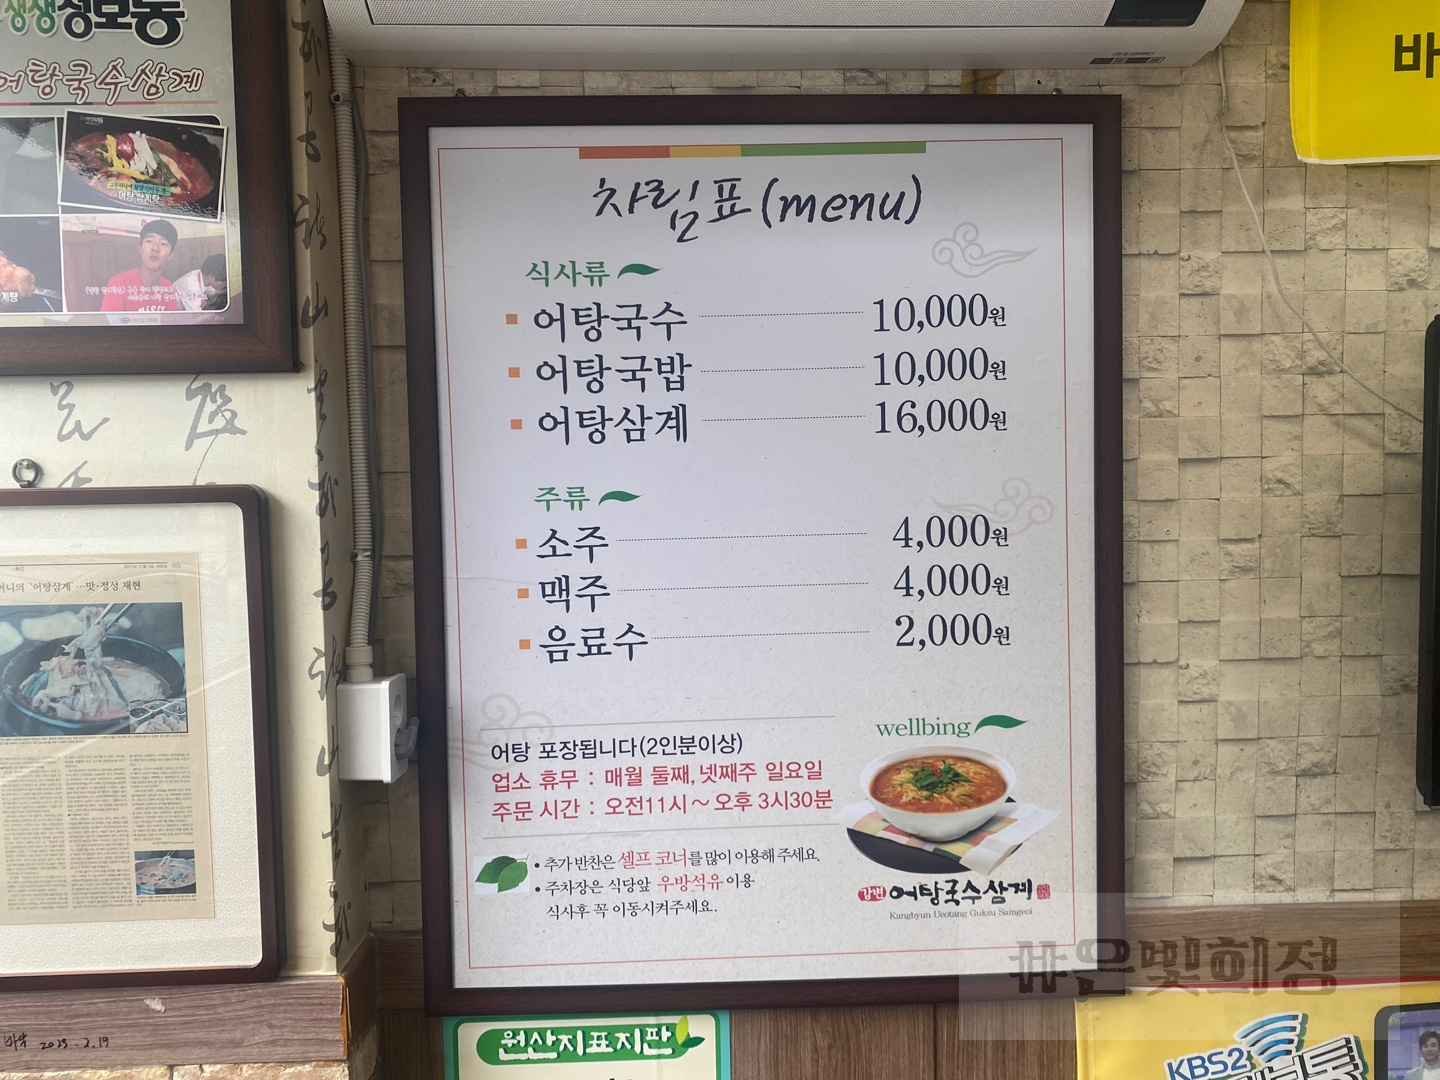 생생정보통
어탕국수삼계
어탕삼계탕
차림표(menu)
식사류
어탕국수 10,000원
어탕국밥 10,000원
어탕삼계 16,000원
주류
소주 4,000원
맥주 4,000원
음료수 2,000원
어탕 포장됩니다(2인분이상)
업소 휴무 : 매월 둘째, 넷째주 일요일
주문 시간 : 오전11시 ~ 오후 3시30분
• 추가 반찬은 셀프 코너를 많이 이용해 주세요.
• 주차장은 식당앞 우방석유 이용
식사후 꼭 이동시켜주세요.
wellbing
강변 어탕국수삼계
Kangbyun Ueotang Guksu Samgeoi
머니의 '어탕삼계'…맛·정성 재현
2023.2.19
원산지표지판
바
KBS2